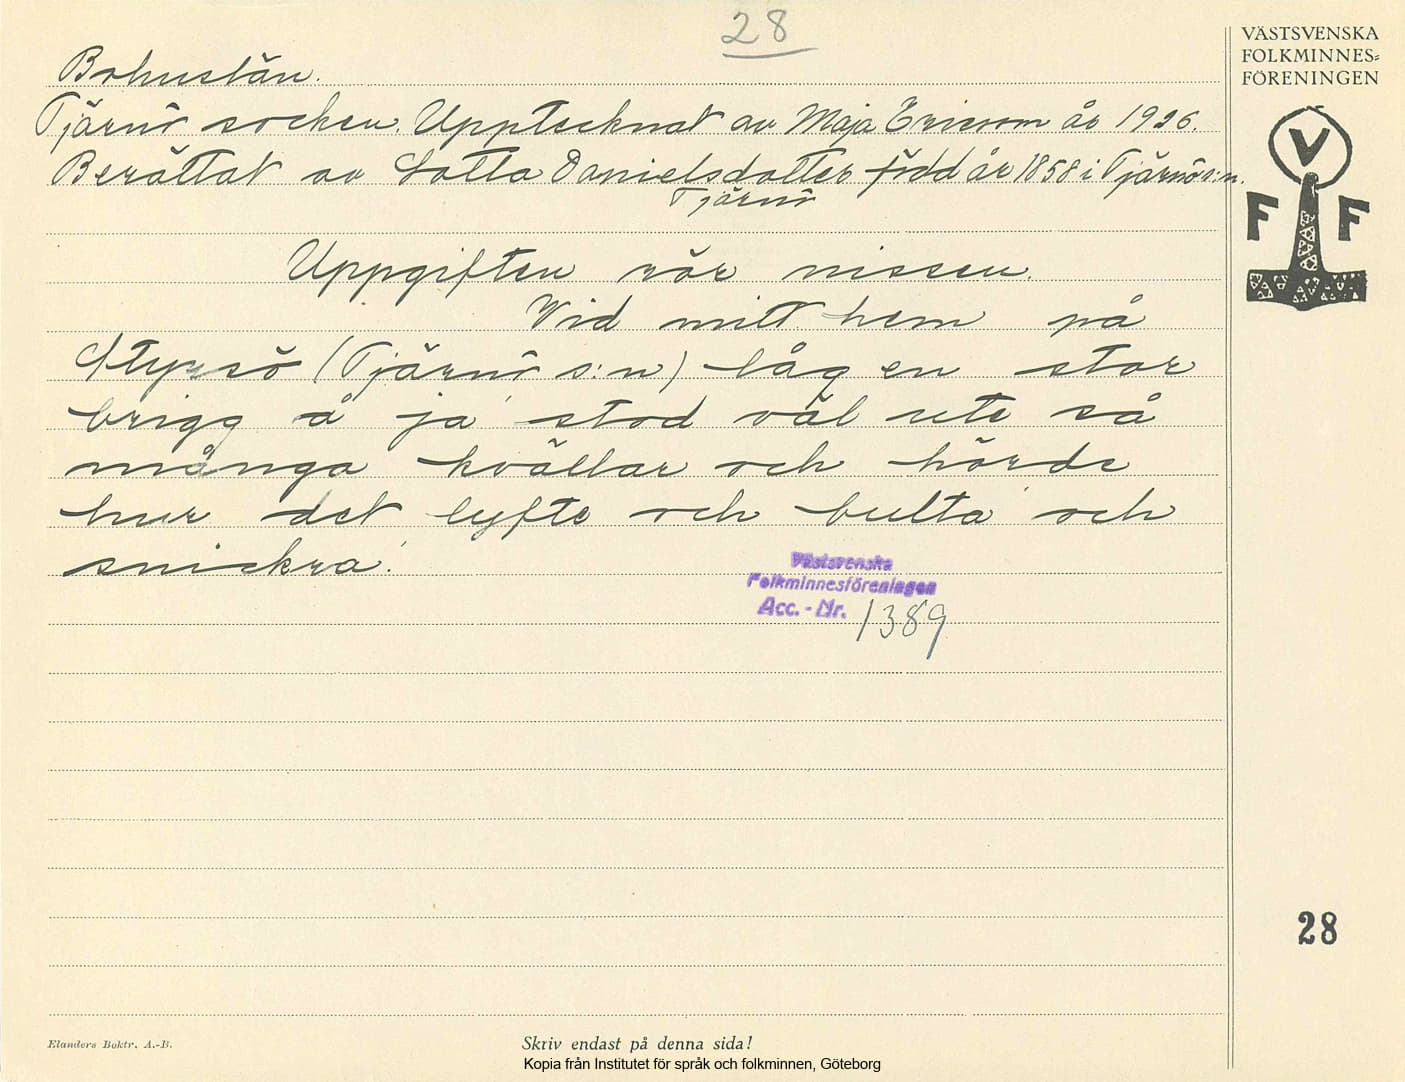 28
VÄSTSVENSKA
FOLKMINNES=
FÖRENINGEN
V
F F
Bohuslän.
Tjärnö socken. Upptecknat av Maja Ericson år 1926.
Berättat av Lotta Danielsdotter född år 1858 i Tjärnö s:n.
Tjärnö
Uppgiften rör nissen.
Vid mitt hem på
Styrsö (Tjärnö s:n) låg en stor
brigg å ja' stod väl ute så
många kvällar och hörde
hur det lyfte och bulta' och
snickra'.
Västsvenska
Folkminnesföreningen
Acc. - Nr. 1389
28
Elanders Boktr. A.-B.
Skriv endast på denna sida!
Kopia från Institutet för språk och folkminnen, Göteborg